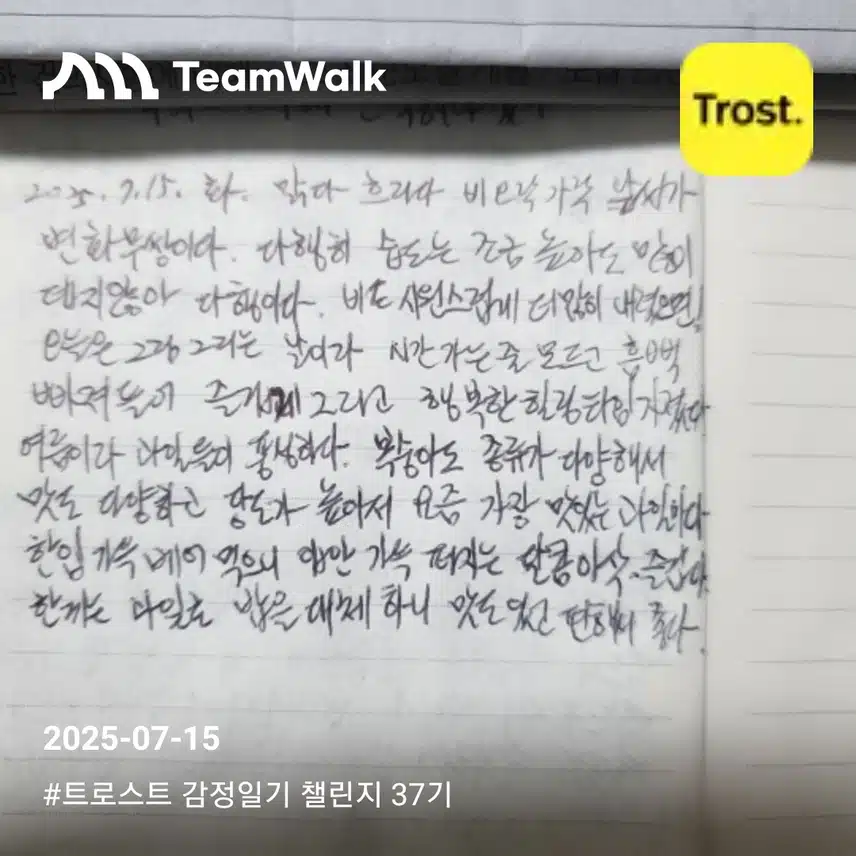 TeamWalk
Trost.
2025.7.15. 화. 맑다 흐리다 비오락가락 날씨가
변화무쌍이다. 다행히 습도는 조금 높아도 많이
덥지않아 다행이다. 비도 시원스럽게 더많이 내렸으면!
오늘은 그림 그리는 날이라 시간가는줄 모르고 흠뻑
빠져들어 즐겁게 그리고 행복한 힐링타임 가졌다
여름이라 과일들이 풍성하다. 복숭아도 종류가 다양해서
맛도 다양하고 당도가 높아서 요즘 가장 맛있는 과일이다
한입 가득 베어 먹으니 입안 가득 퍼지는 달콤아삭. 즐겁다.
한끼는 과일로 밥을 대체 하니 맛도 있고 편해서 좋다.
2025-07-15
#트로스트 감정일기 챌린지 37기